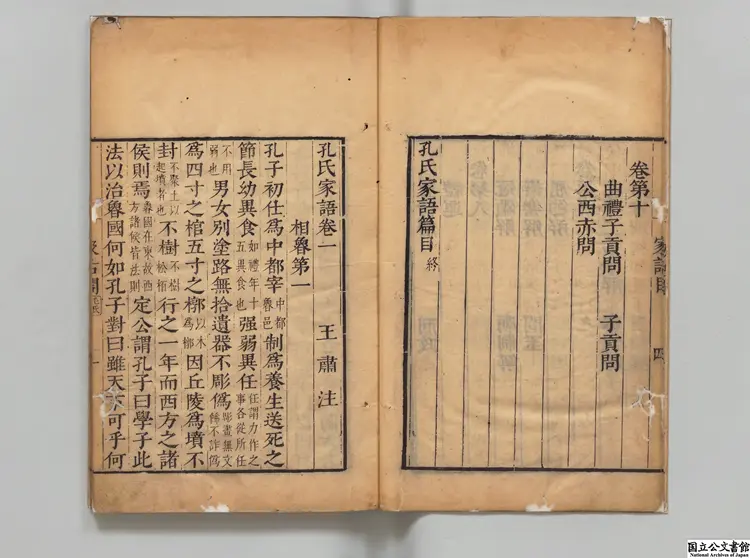 卷第十
曲禮子貢問　子貢問
公西赤問
孔氏家語篇目終
孔氏家語卷一　王肅注
相魯第一
孔子初仕爲中都宰中都魯邑制爲養生送死之
節長幼異食如禮年十五異食也强弱異任任謂力作之事各從所任
不用弱也男女別塗路無拾遺器不彫僞彫畫無文飾不詐僞
爲四寸之棺五寸之椁以木爲椁因丘陵爲墳不
封不聚土以起墳者也不樹不樹松栢行之一年而西方之諸
侯則焉魯國在東故西方諸侯皆法則定公謂孔子曰學子此
法以治魯國何如孔子對曰雖天下可乎何
国立公文書館
National Archives of Japan